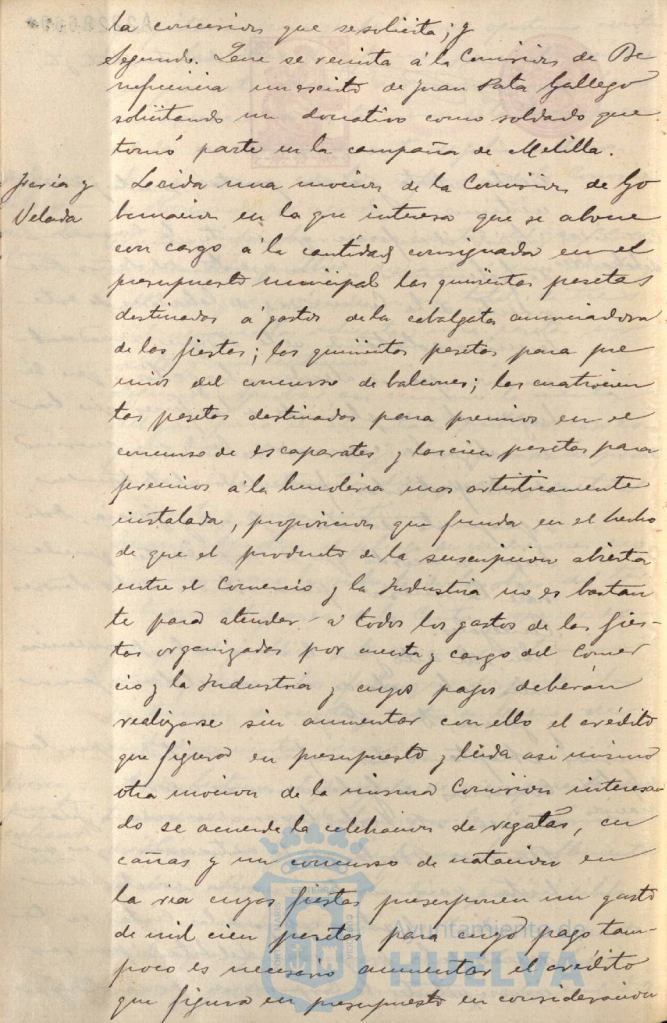 la concesion que se solicita; y
Segundo. Que se remita á la Comision de Be
neficencia un escrito de Juan Gallego
solicitando un donativo como soldado que
tomó parte en la campaña de Melilla.
Feria y
Velada
Leida una mocion de la Comision de Go
bernacion en la que interesa que se abone
con cargo á la cantidad consignada en el
presupuesto municipal las quinientas pesetas
destinadas á gastos de la cabalgata anunciadora
de las fiestas; las quinientas pesetas para pre
mios del concurso de balcones; las cuatrocien
tas pesetas destinadas para premios en el
concurso de escaparates y las cien pesetas para
premios á la mas artisticamente
instalada, proposicion que funda en el hecho
de que el producto de la suscripcion abierta
entre el Comercio y la Industria no es bastan
te para atender a todos los gastos de las fies-
tas organizadas por cuenta y cargo del Comer
cio y la Industria y cuyos pagos deberán
realizarse sin aumentar con ello el crédito
que figura en presupuesto y leida asi mismo
otra mocion de la misma Comision interesan
do se acuerde la celebracion de regatas, cu
cañas y un concurso de natacion en
la ria cuyas fiestas presuponen un gasto
de mil cien pesetas para cuyo pago tam-
poco es necesario aumentar el crédito
que figura en presupuesto en consideracion
Ayuntamiento de
HUELVA